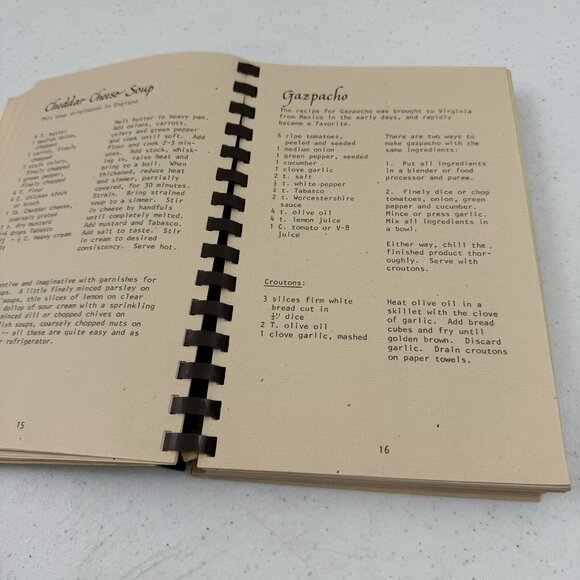 Cheddar Cheese Soup
This soup originated in England.
4 T. butter
1 medium onion,
chopped
1 carrot, finely
chopped
1 stalk celery,
finely chopped
green pepper,
finely chopped
T. flour
4 C. chicken stock
lb. Cheddar cheese,
coarsely grated
t. dry mustard
drops Tabasco
C. heavy cream
Melt butter in heavy pan.
Add onions, carrots,
celery and green pepper
and cook until soft. Add
flour and cook 2-3 min-
utes. Add stock, whisk-
ing in, raise heat and
bring to a boil. When
thickened, reduce heat
and simmer, partially
covered, for 30 minutes.
Strain. Bring strained
soup to a simmer. Stir
in cheese by handfuls
until completely melted.
Add mustard and Tabasco.
Add salt to taste. Stir
in cream to desired
consistency. Serve hot.
entive and imaginative with garnishes for
ups. A little finely minced parsley on
soups, thin slices of lemon on clear
dollop of sour cream with a sprinkling
minced dill or chopped chives on
fish soups, coarsely chopped nuts on
-- all these are quite easy and as
r refrigerator.
15
Gazpacho
The recipe for Gazpacho was brought to Virginia
from Mexico in the early days, and rapidly
became a favorite.
6 ripe tomatoes,
peeled and seeded
1 medium onion
1 green pepper, seeded
1 cucumber
1 clove garlic
2 t. salt
½ t. white pepper
½ t. Tabasco
2 t. Worcestershire
sauce
4 t. olive oil
4 t. lemon juice
1 C. tomato or V-8
juice
There are two ways to
make gazpacho with the
same ingredients:
1. Put all ingredients
in a blender or food
processor and puree.
2. Finely dice or chop
tomatoes, onion, green
pepper and cucumber.
Mince or press garlic.
Mix all ingredients in
a bowl.
Either way, chill the
finished product thor-
oughly. Serve with
croutons.
Croutons:
3 slices firm white
bread cut in
½" dice
2 T. olive oil
1 clove garlic, mashed
Heat olive oil in a
skillet with the clove
of garlic. Add bread
cubes and fry until
golden brown. Discard
garlic. Drain croutons
on paper towels.
16